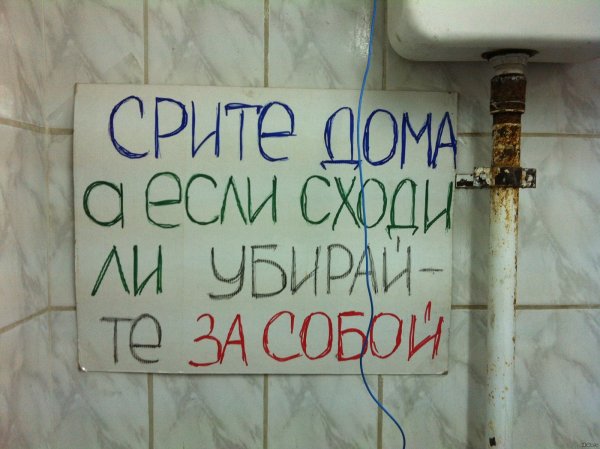 СРИТЕ ДОМА
а ЕСЛИ СХОДИ
ЛИ УБИРАЙ-
ТЕ ЗА СОБОЙ